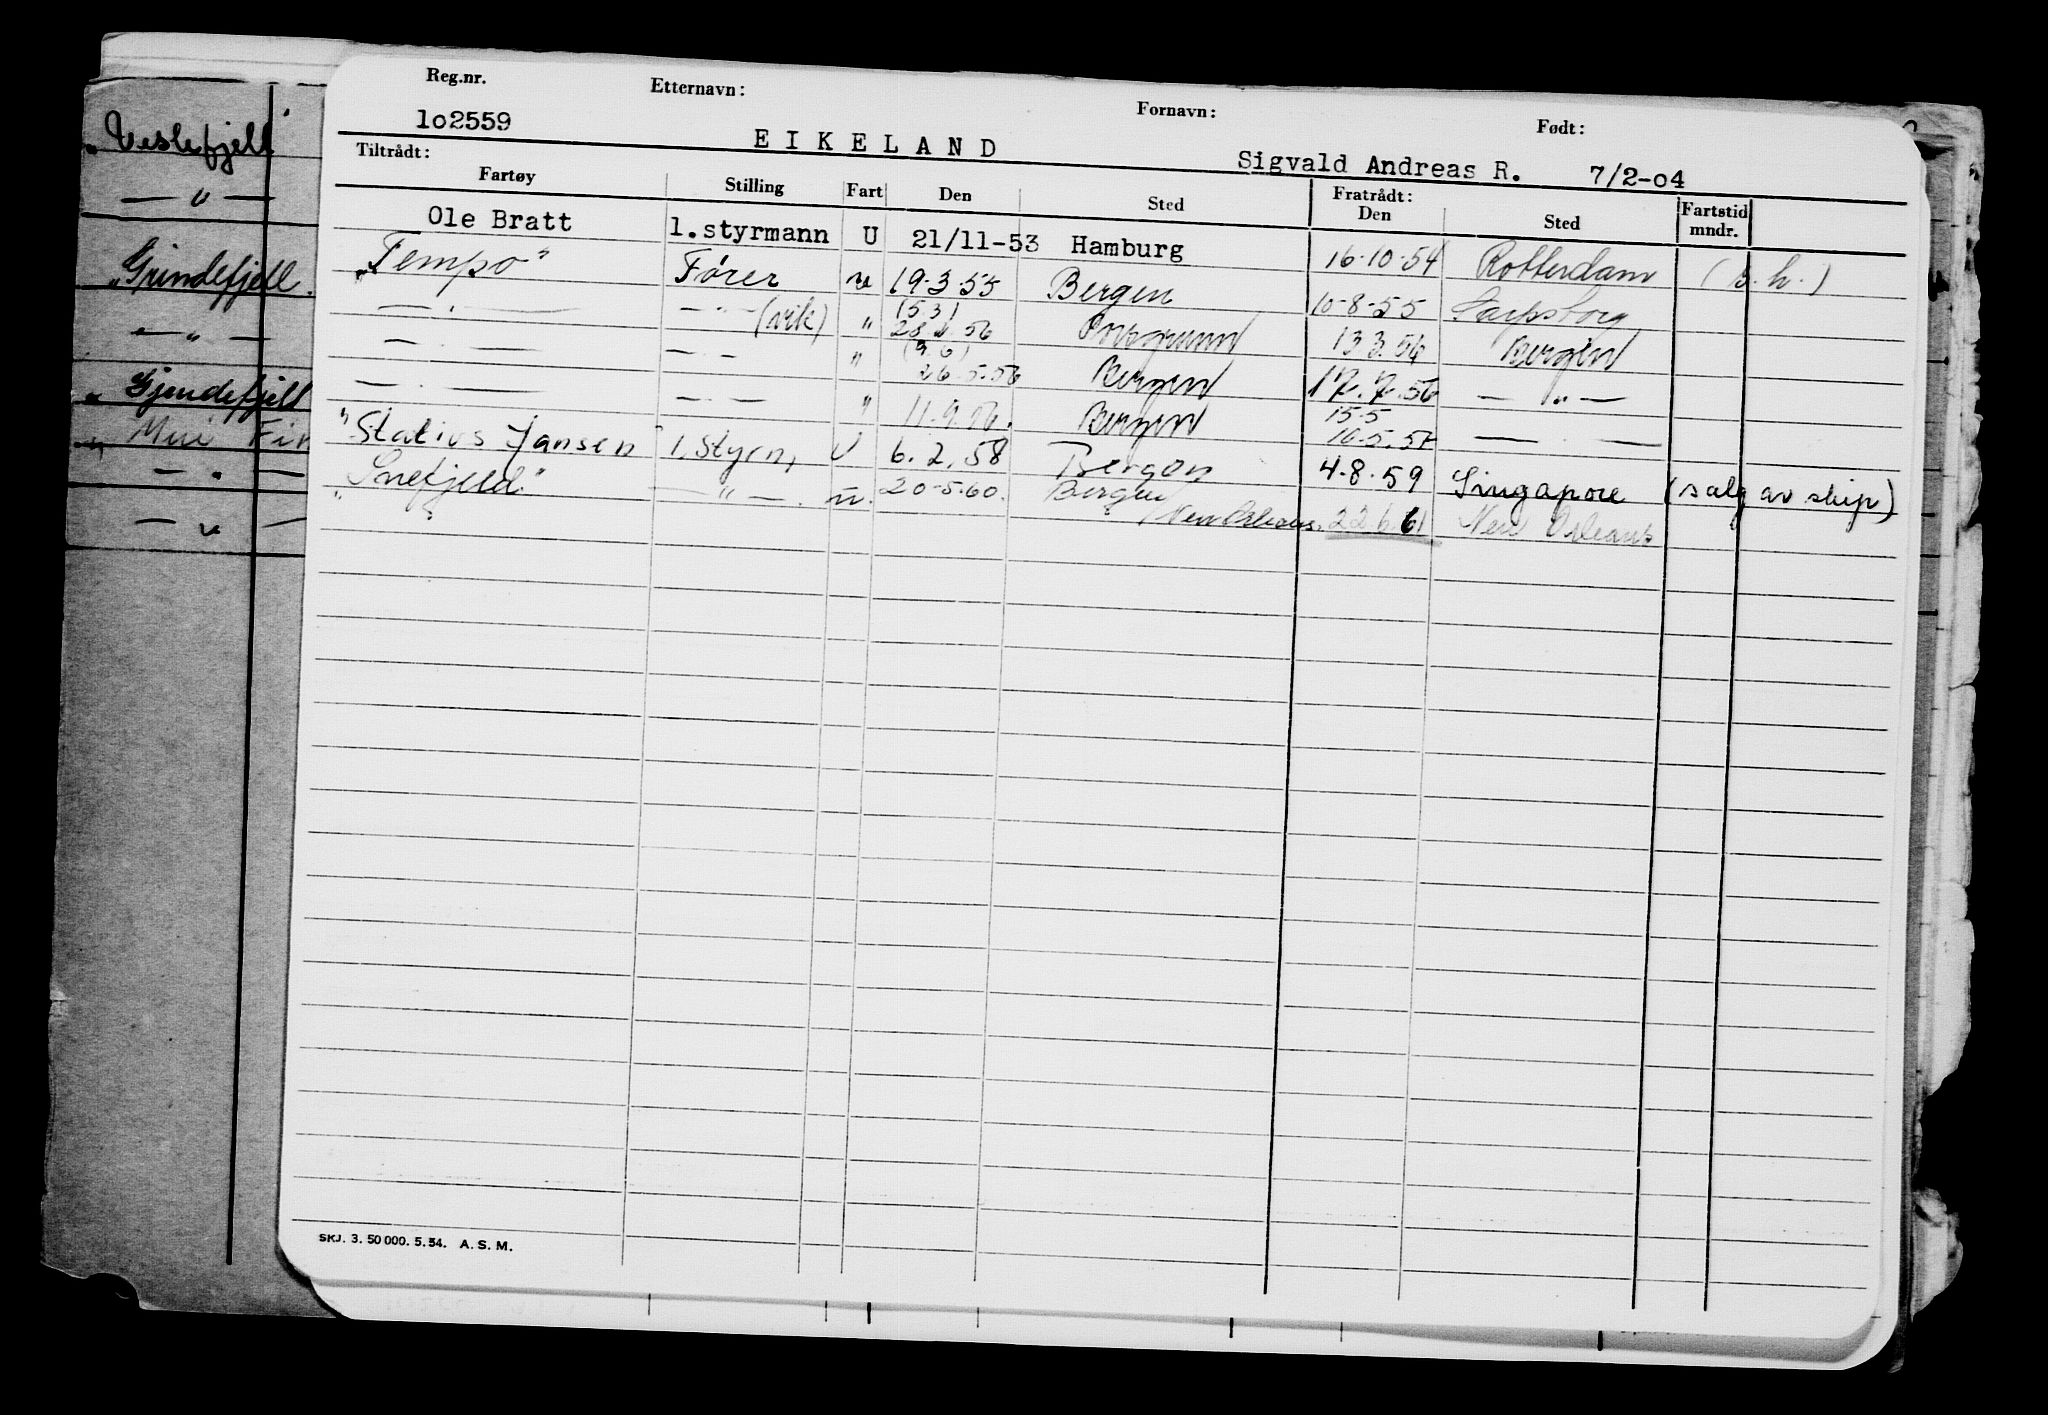 Reg.nr. Etternavn: Fornavn: Født:
1o2559 EIKELAND Sigvald Andreas R. 7/2-o4
Tiltrådt: Fratrådt:
Fartøy Stilling Fart Den Sted Den Sted Fartstid mndr.
Ole Bratt 1.styrmann U 21/11-53 Hamburg 16-10-54 Rotterdam (s.h.)
"Tempo" Fører u 19-3-55 Bergen 10-8-55 Sarpsborg
— " — — " — (vik) " (531) 28.1.56 Porsgrunn 13 3.56 Bergen
— " — — " — " (96) 26.5.56 Bergen 17.7.56 — " —
— " — — " — " 11.9.56. Bergen 15.5 16.5.57 — —
"Statios Jansen" 1. Styrm, U 6.2.58 Bergen 4.8.59 Singapore (salg av skip)
"Snefjeld" — " — . u. 20-5.60. Bergen
New Orleans. 22.6.61 New Orleans
"Veslefjell"
— " —
"Grindefjell.
— " —
"Gjendefjell
" Mui Fin
— " —
— " —
SKJ. 3. 50 000. 5. 54. A. S. M.